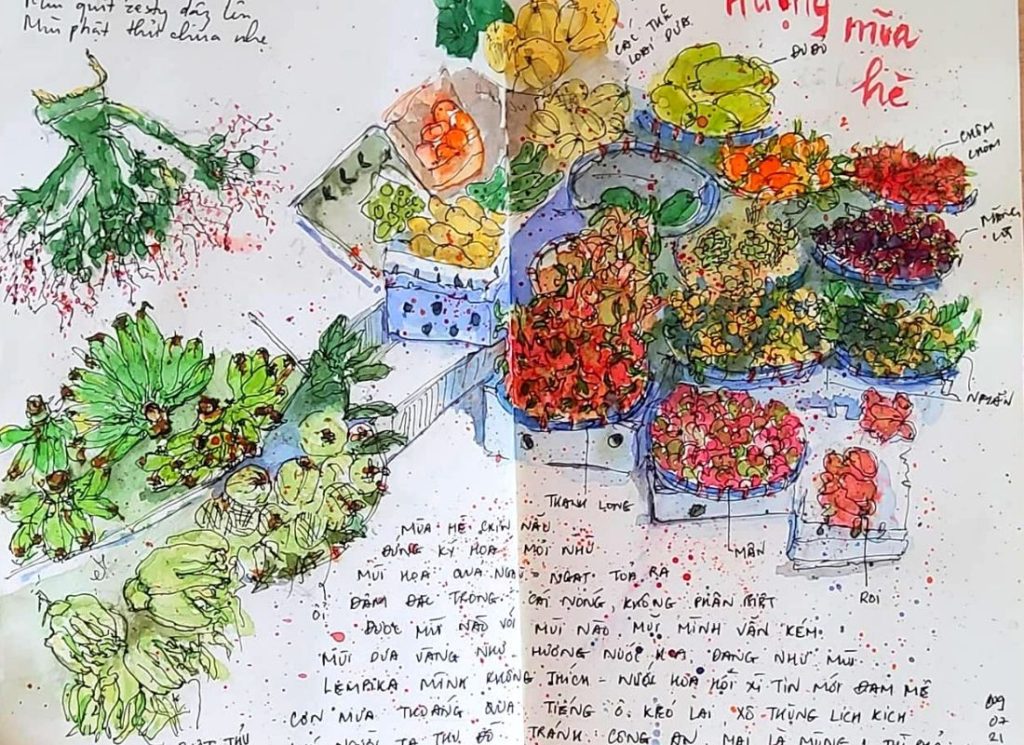 Mùi quít zesty dấy lên
Mùi phật thủ chua nhẹ
Hương
mùa
hè
CÁC THỂ
LOẠI DƯA
ĐU ĐỦ
CHÔM
CHÔM
MĂNG
CỤT
NHÃN
THANH LONG
MẬN
ROI
ỔI
MÙA HÈ CHÍN NẪU
ĐỨNG KÝ HỌA MỎI NHỪ
MÙI HOA QUẢ NGÀO NGẠT TỎA RA
ĐẬM ĐẶC TRONG CÁI NÓNG, KHÔNG PHÂN BIỆT
ĐƯỢC MÙI NÀO VỚI MÙI NÀO. MŨI MÌNH VẪN KÉM.
MÙI DƯA VÀNG NHƯ HƯƠNG NƯỚC HOA, ĐANG NHƯ MÙI
LEMPIKA MÌNH KHÔNG THÍCH - NƯỚC HOA HỒI XÌ TIN MỚI ĐAM MÊ
CƠN MƯA THOẢNG QUA TIẾNG Ô KÉO LẠI, XÔ THÙNG LỊCH KỊCH
PHẬT THỦ
NGƯỜI TA THU ĐỒ TRÁNH CÔNG AN. MAI LÀ MÙNG 1
09
07
21